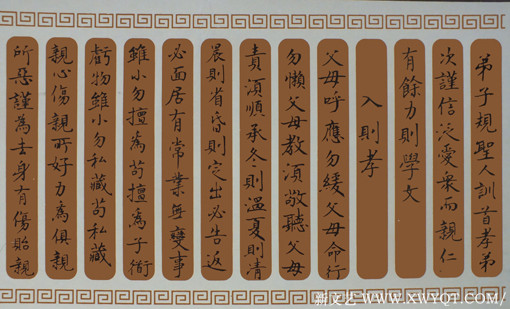 弟子規聖人訓首孝弟
次謹信泛愛衆而親仁
有餘力則學文
入則孝
父母呼應勿緩父母命行
勿懶父母教須敬聽父母
責須順承冬則溫夏則凊
晨則省昏則定出必告返
必面居有常業無變事
雖小勿擅為苟擅為子衜
虧物雖小勿私藏苟私藏
親心傷親所好力為俱親
所惡謹為去身有傷貽親
新文艺 WWW.XWYQT.COM/